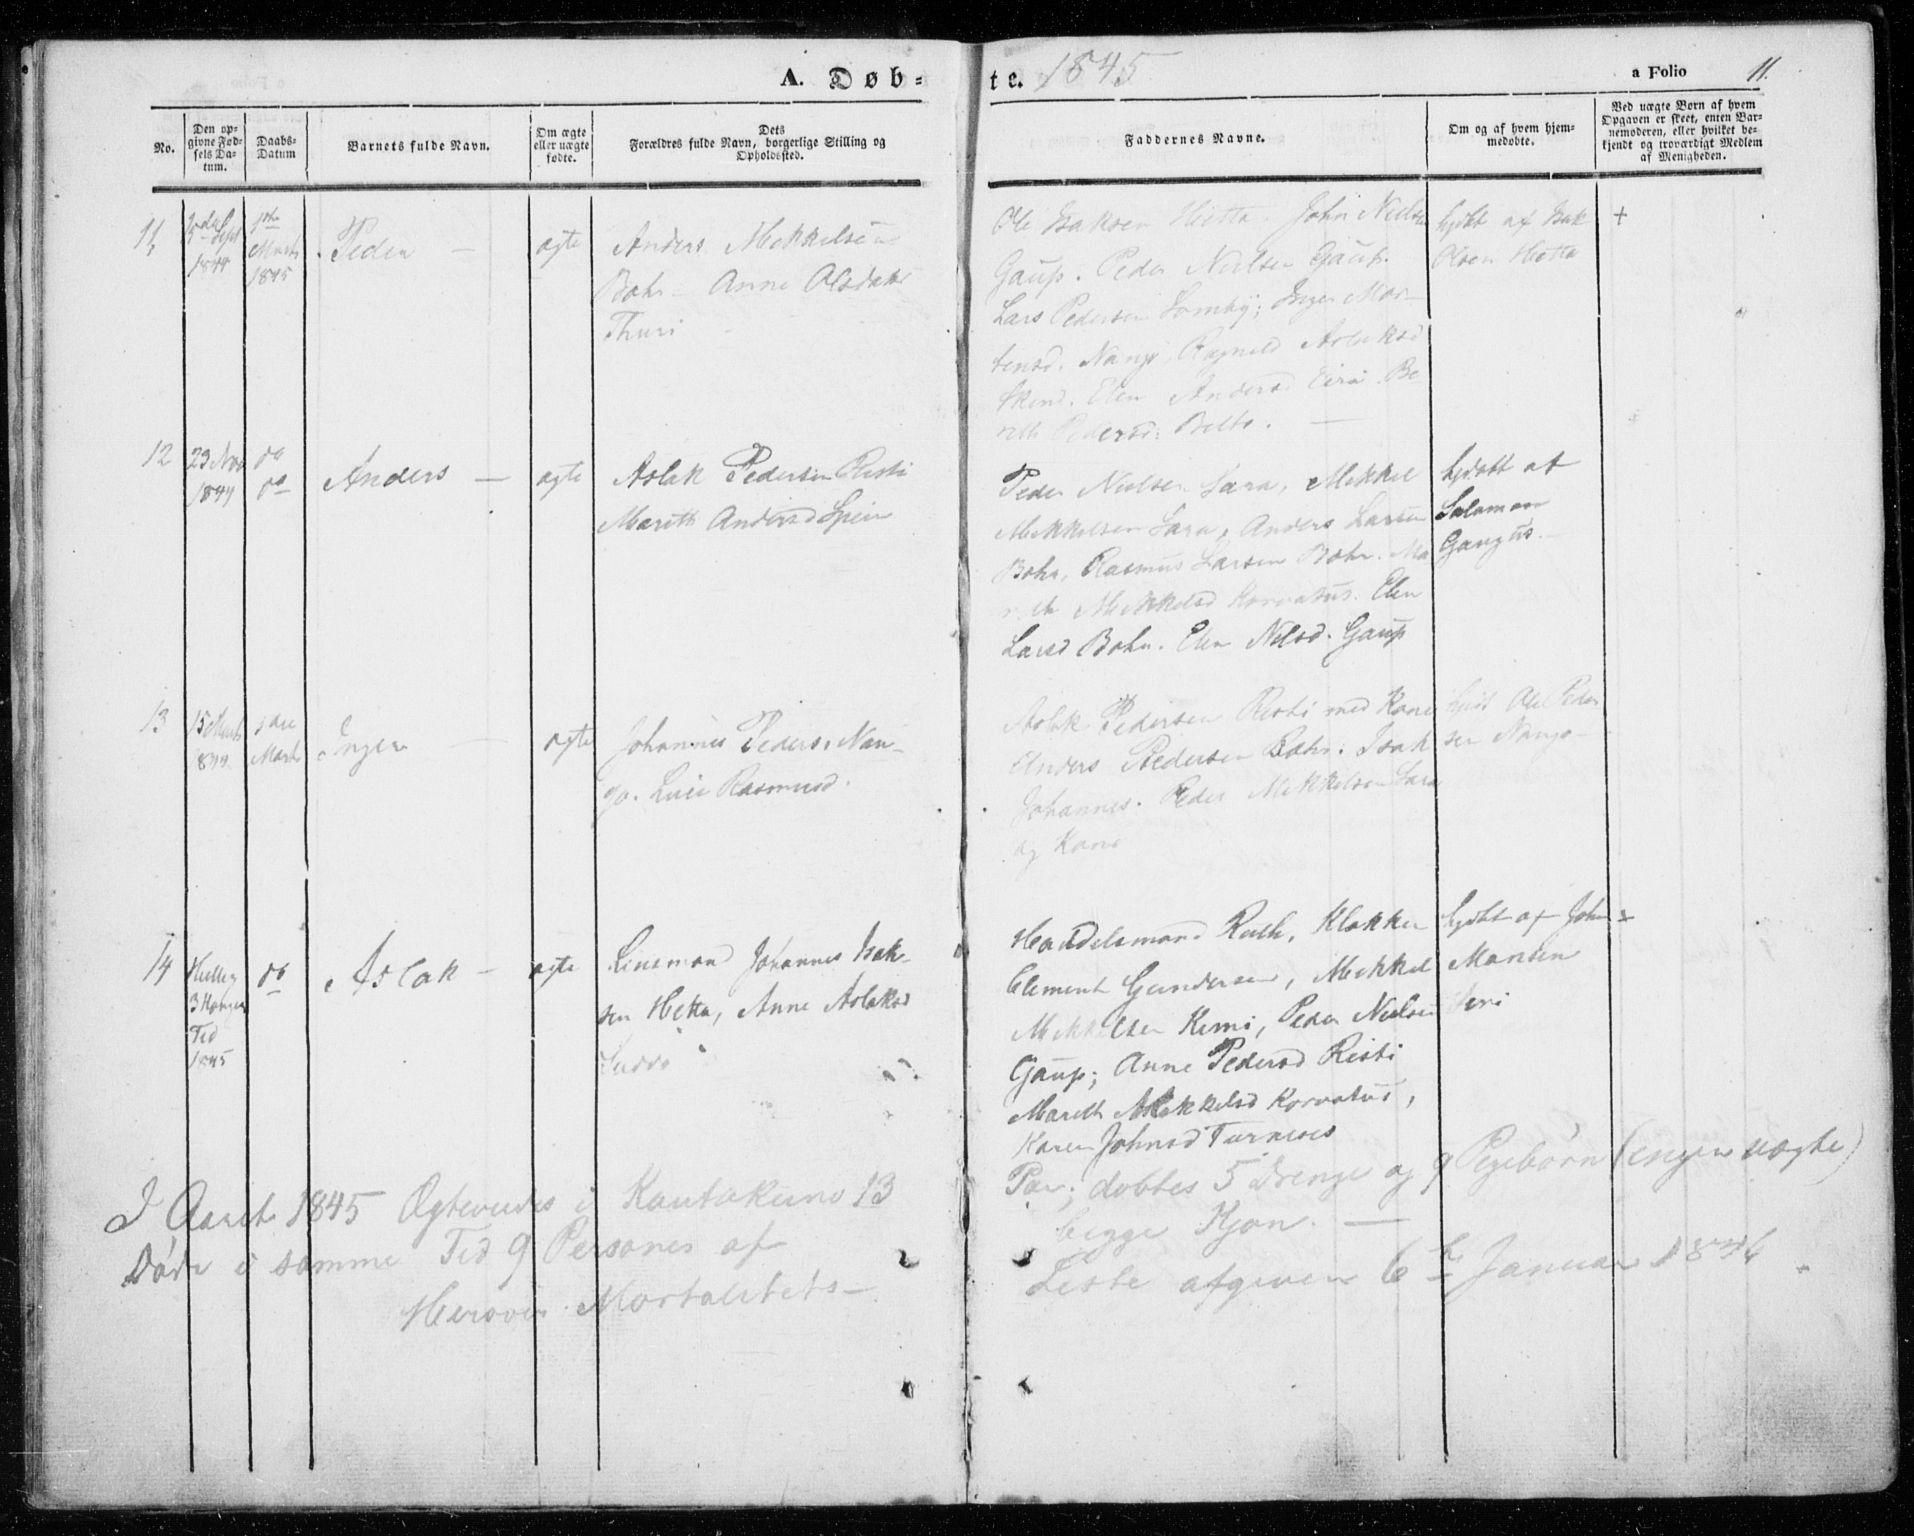 A. Døb=
te. 1845
a Folio 11.
No.
Den op-
givne Fød-
sels Da-
tum.
Daabs-
Datum
Barnets fulde Navn.
Om ægte
eller uægte
fødte.
Dets
Forældres fulde Navn, borgerlige Stilling og
Opholdssted.
Faddernes Navne.
Om og af hvem hjem-
medøbte.
Ved uægte Børn af hvem
Opgaven er skeet, enten Bar-
nemoderen, eller hvilket be-
kjendt og troværdigt Medlem
af Menigheden.
11
Sept
1844
Marts
1845
Peder —
ægte
Anders Mekkelsen
Bahr — Anne Olsdatr
Thuri
Ole Isaksen Hætta. John Nielsen
Gaup. Peder Nielsen Gaup.
Lars Pedersen Somby; Inger Mor-
tensd. Nango, Ragnild Aslaksd
Elen Andersd Eira. Be-
reth Pedersd: Belto. —
hjdøbt af Isak
Olsen Hætta
+
12
23 Nov
1844
do
do
Anders —
ægte
Aslak Pedersen Risti
Marith Andersd Spein
Peder Nielsen Sara, Mekkel
Mekkelsen Sara, Anders Larsen
Bahr, Rasmus Larsen Bæhr. Ma
reth Mekkelsd Korvatus. Elen
Larsd Bahr. Elen Nilsd. Gaup
hjdøbt af
Salamon
Gangus. —
13
15
1844
Marts
Inger —
ægte
Johannes Peders. Nan-
go. Rasmusd.
Aslak Pedersen Risti med Kone
Anders Pedersen Bæhr. Isak
Johannes. Peder Mekkelsen Sara
og Kone
Ole Peder
sen Nango —
14
Hellig
3 Konger
Tid
1845
do
Aslak —
ægte
Lensmand Johannes Isak-
sen Hætta, Anne Aslaksd
Handelsmand Ruth, Klokker
Clement Gundersen, Mekkel
Mekkelsen Kemi, Peder Nielsen
Gaup; Anne Pedersd Risti
Mareth Mekkelsd Korvatus,
Karen Johnsd Turneses
hjdøbt af John
+
I Aaret 1845 Ægteviedes i Kautokeino 13
Par; døbtes 5 Drenge og 9 Pigebørn (ingen uægte)
Døde i samme Tid 9 Personer af
begge Kjøn. —
Herover Mortalitets-
Liste afgiven 6te Januar 1846.